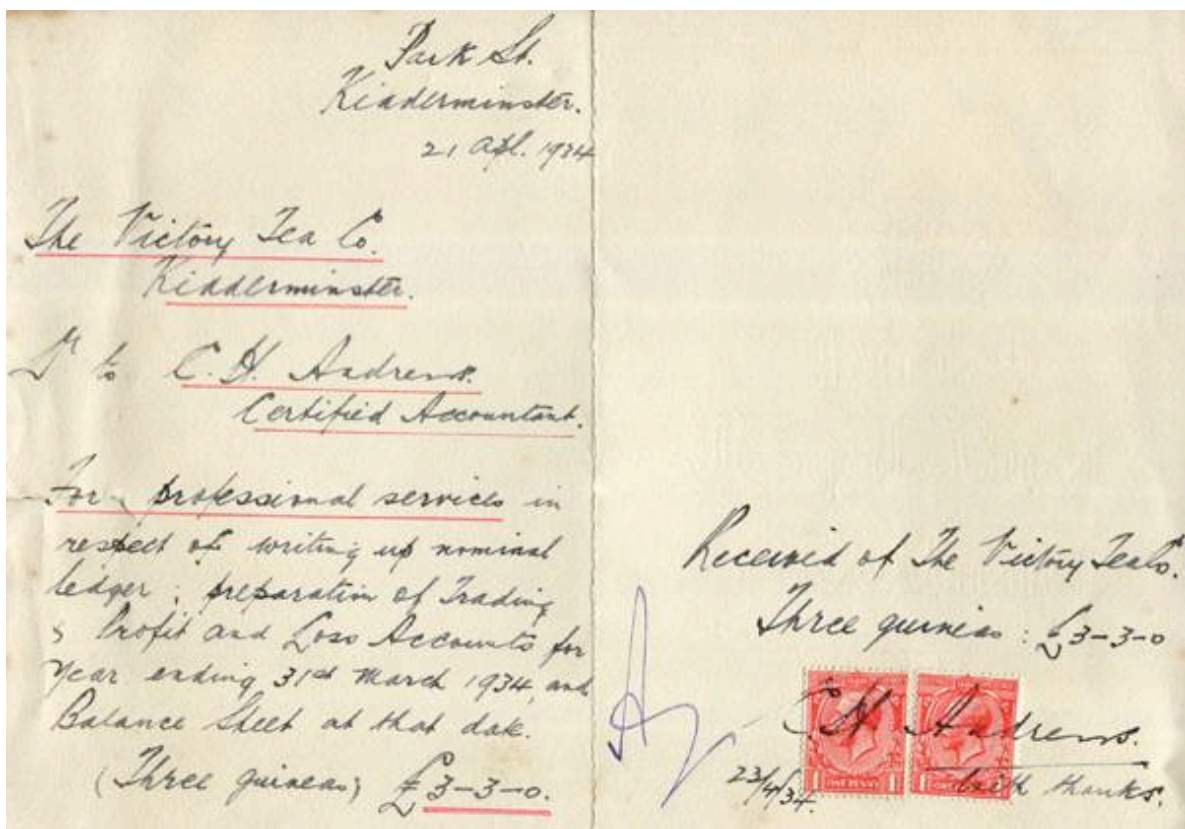 Park St.
Kidderminster.
21 Apl. 1934
The Victory Tea Co.
Kidderminster.
Dr to C. H. Andrews.
Certified Accountant.
For professional services in
respect of writing up nominal
ledger; preparation of Trading
& Profit and Loss Accounts for
Year ending 31st March 1934, and
Balance Sheet at that date.
(Three guineas) £3-3-0.
Received of The Victory Tea Co.
Three guineas: £3-3-0
C H Andrews.
23/4/34. with thanks.
1 ONE PENNY 1
1 ONE